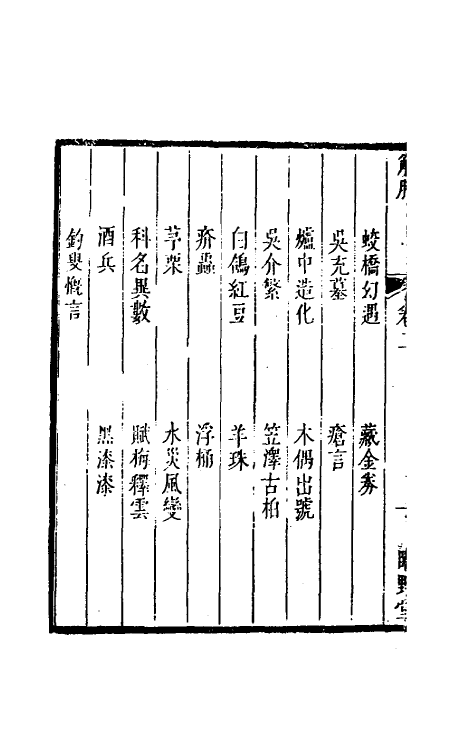 蛟橋幻遇　藏金券
吳充墓　瘡言
爐中造化　木偶出號
吳介繁　笠澤古柏
白鴿紅豆　羊珠
疥蟲　浮桶
芧栗　水災風變
科名異數　賦梅釋雲
酒兵　黑漆漆
釣叟慨言